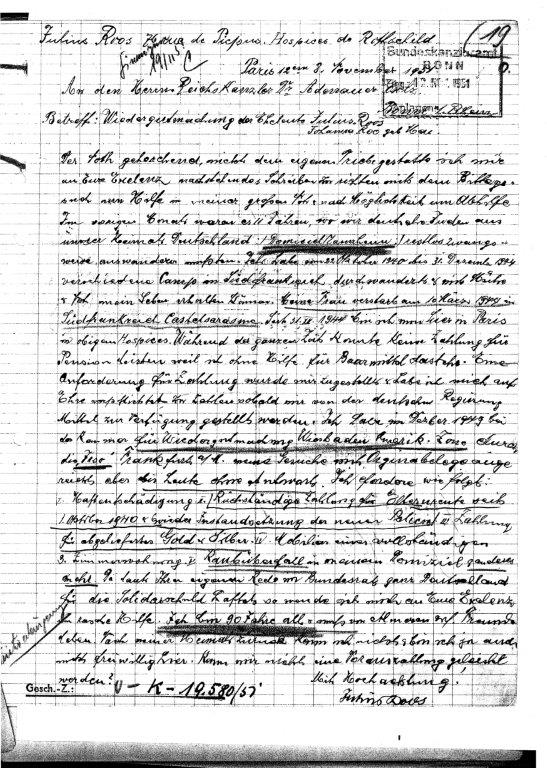 Julius Roos rue de Picpus. Hospices de Rothschild
(19
Bundeskanzleramt
BONN
1951
Paris 12 em 8. November 1951
An den Herrn Reichskanzler Dr Adenauer
Betreff: Wiedergutmachung der Eheleute Julius Roos
Johanna Roos geb
Der Noth gehorchend, nicht dem eigenen Triebe gestatte ich mir
an Eure Exelenz nachstehendes Schreiben zu richten mit dem Bitte
um Hilfe in meiner großen Not und Möglichkeit um Abhilfe
Im vorigen Monat waren es 11 Jahren, wo wir deutsche Juden aus
unserer Heimat Deutschland (Domiciel Mannheim) restlos zwangs
weise auswandern mußten. Ich habe vom 22 Oktober 1940 bis 31 Dezember 1944
verschiedene Camps in Südfrankreich durchwandert & mit Mühe
& Not mein Leben erhalten können. Meine Frau verstarb am 10 März 1944 in
Südfrankreich Castelsarasine. Seit 1944 bin ich nun hier in Paris
in obigen Hospices. Während der ganzen Zeit konnte keine Zahlung für
Pension leisten weil ich ohne Hilfe für Baarmittel dastehe. Eine
Anforderung für Zahlung wurde mir zugestellt & habe ich mich auf
Ehre verpflichtet zu zahlen sobald mir von der deutschen Regierung
Mittel zur Verfügung gestellt werden. Ich habe im 1949 bei
der Kammer für Wiedergutmachung Wiesbaden Amerik. Zone durch
die Irso Frankfurt a/M. meine Gesuche mit Originalbelege einge
reicht, aber bis heute ohne Antwort. Ich fordere wie folgt:
I Haftentschädigung II Rückständige Zahlung für Elternrente seit
1. Oktober 1940 & wieder Instandsetzung der neuen III Zahlung
für abgeliefertes Gold & Silber IV Mobilien einer vollständigen
3. Zimmerwohnung V Raubüberfall in meinem Domiziel
Da laut Ihrer eigenen Rede im Bundesrat ganz Deutschland
für die Solidarschuld haftet so wende ich mich an Eure Exelenz
um rasche Hilfe. Ich bin 90 Jahre alt & muß von Almosen
leben. Nach meiner Heimat zurück kann ich nicht & bin ich ja auch
nicht freiwillig hier. Kann mir nicht eine Vorauszahlung geleistet
werden?
Mit Hochachtung!
Julius Roos
Gesch.-Z.: V - K - 19.580/51